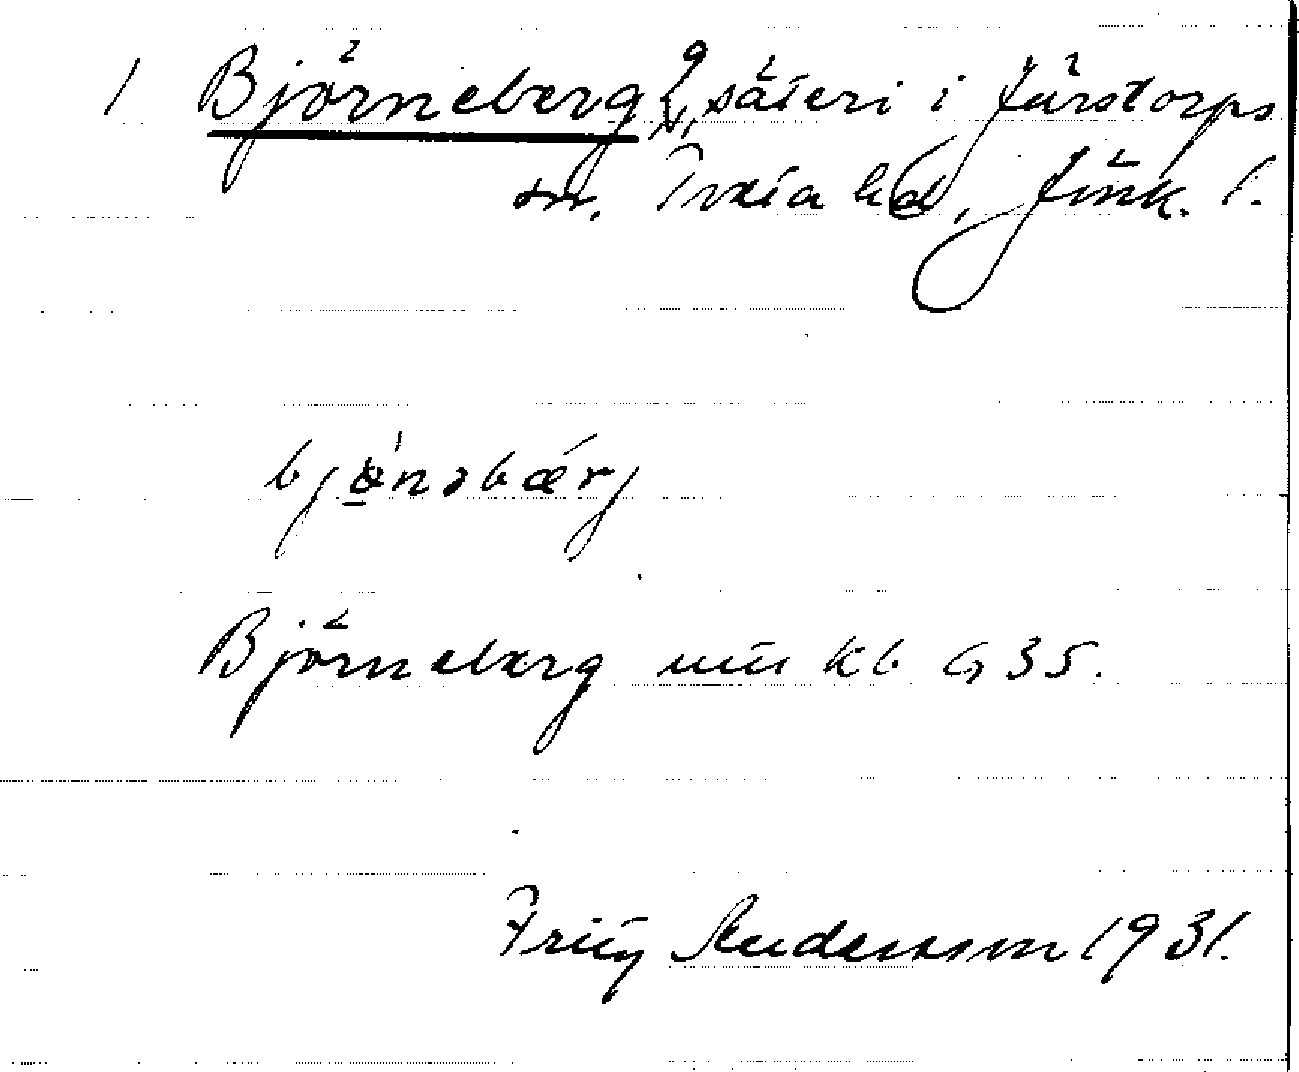 1 Björneberg, säteri i Järstorps
sn. Tveta hd, Jönk. l.
bjönəbærj
Björneberg uu kb G 35.
Fritz Andersson 1931.